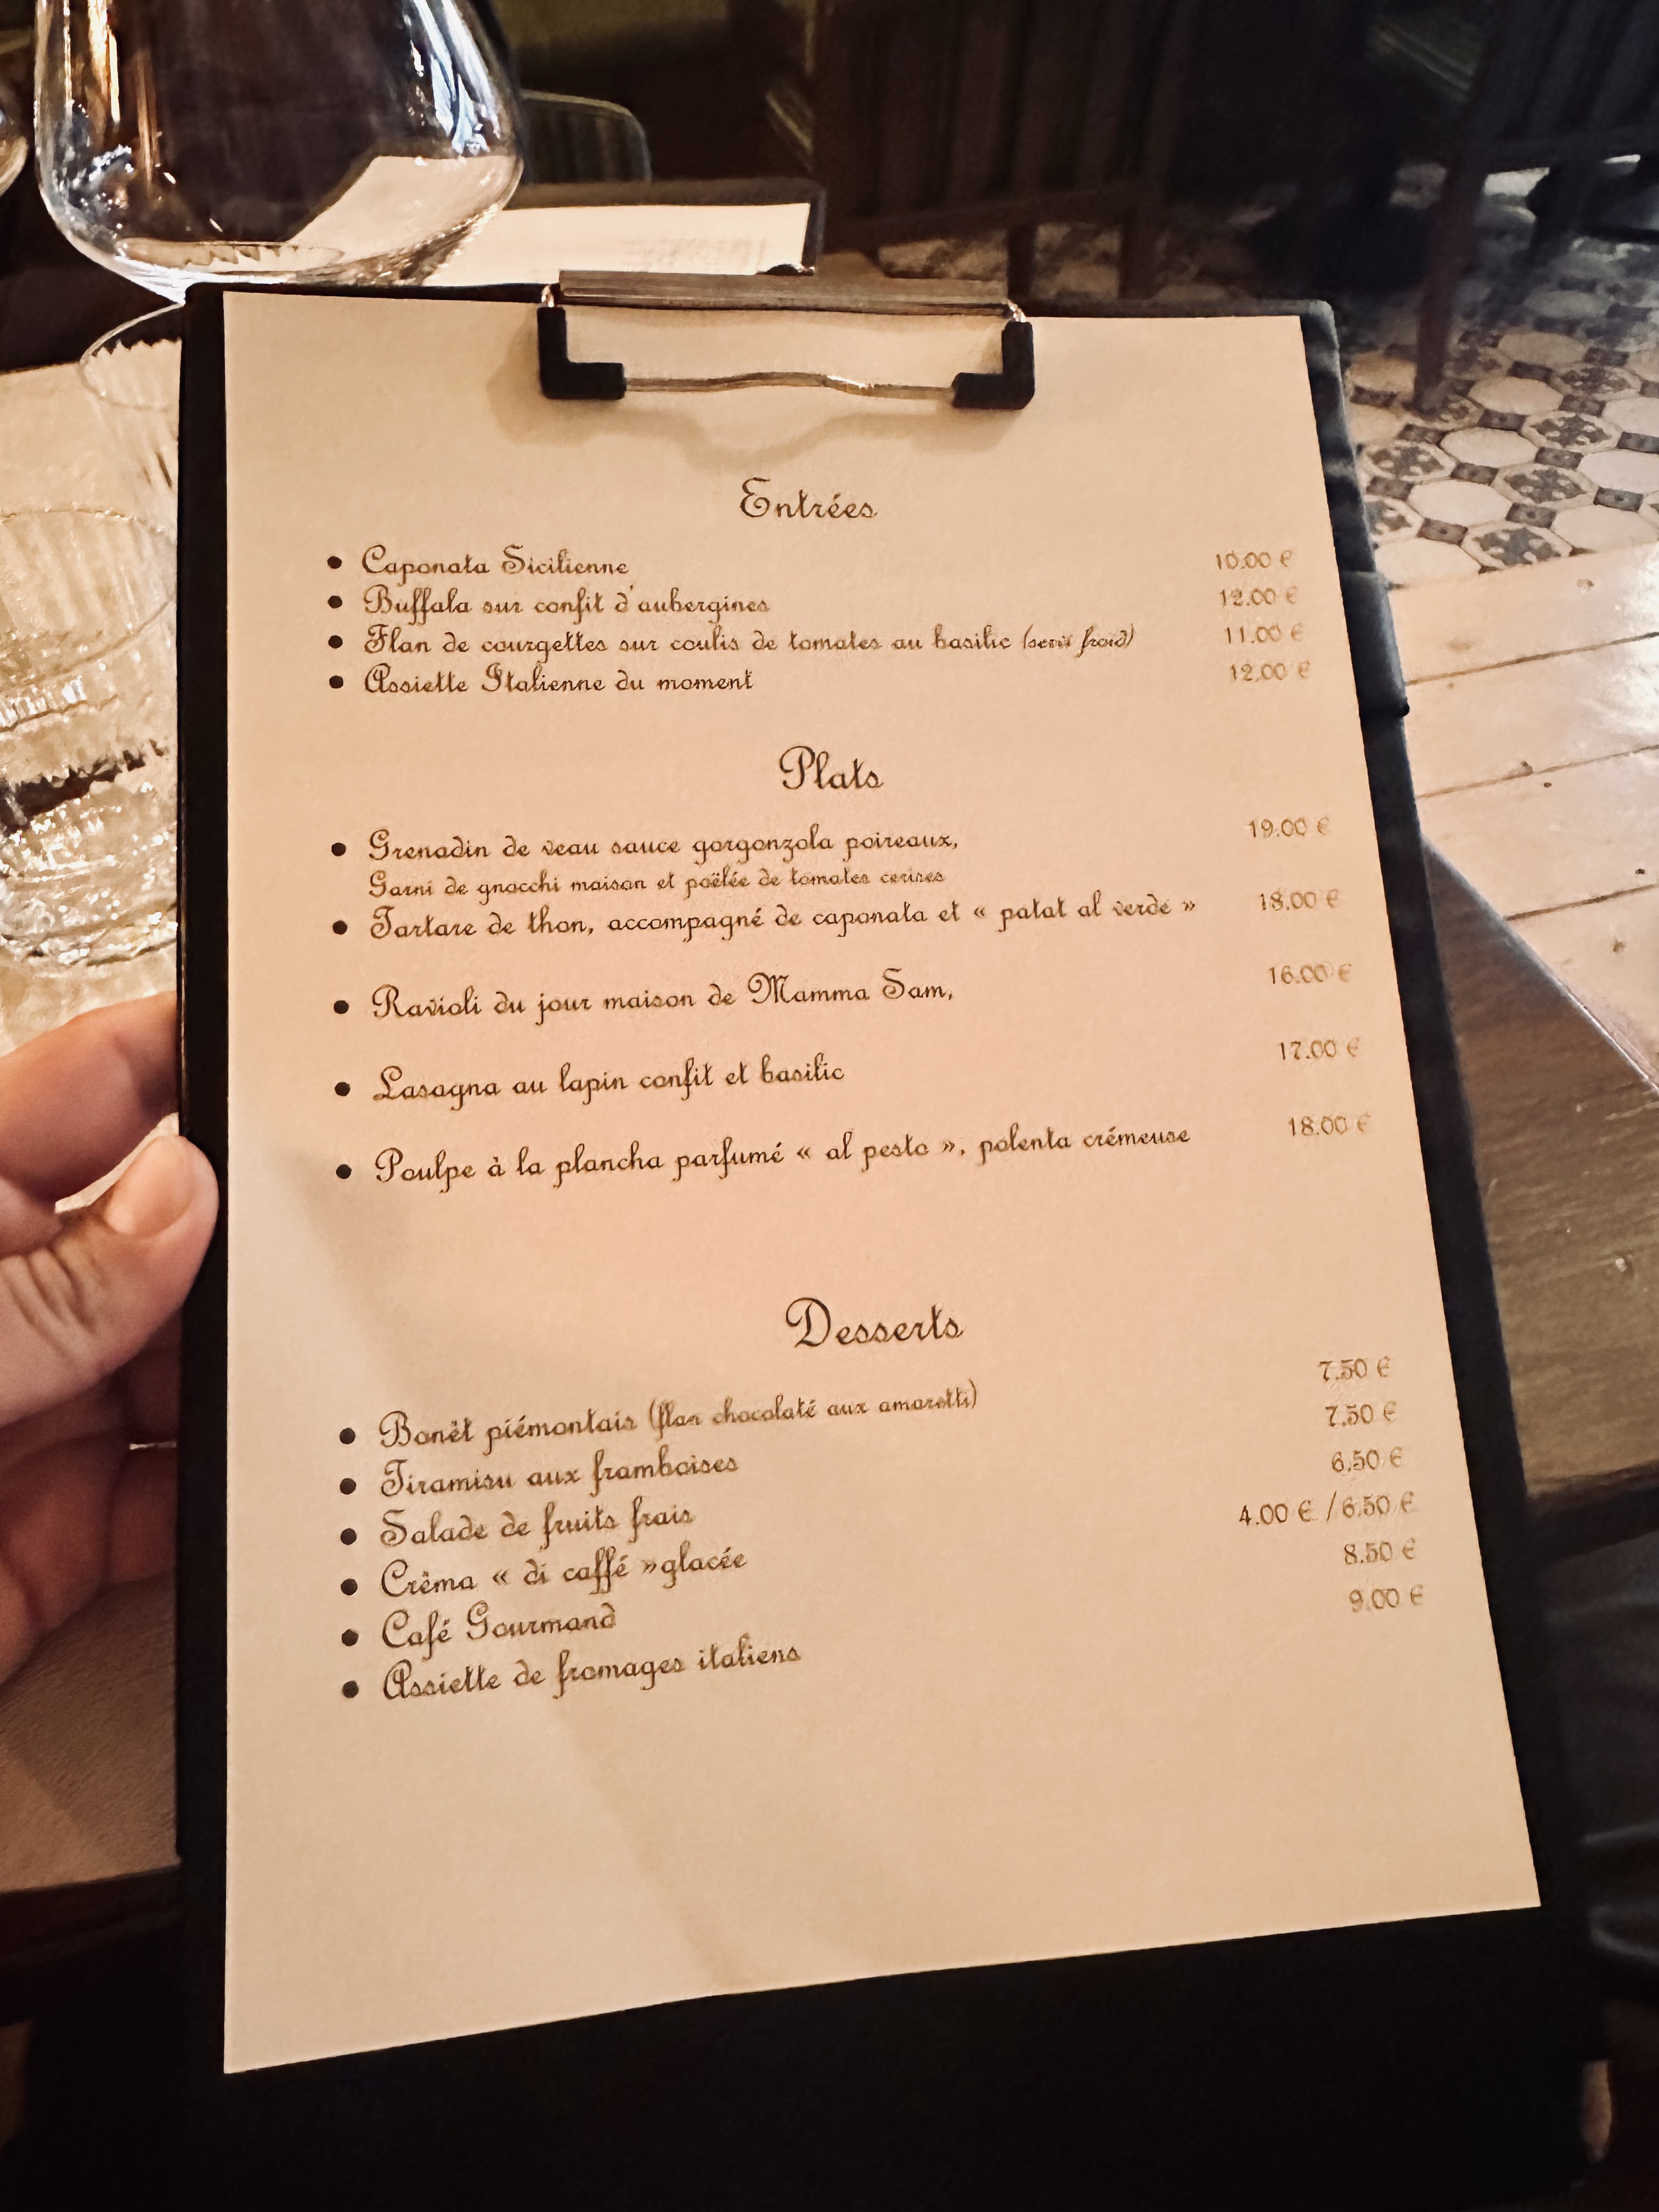 Entrées
• Caponata Sicilienne 10.00 €
• Buffala sur confit d'aubergines 12.00 €
• Flan de courgettes sur coulis de tomates au basilic (servi froid) 11.00 €
• Assiette Italienne du moment 12.00 €
Plats
• Grenadin de veau sauce gorgonzola poireaux, 19.00 €
Garni de gnocchi maison et poëlée de tomates cerises
• Tartare de thon, accompagné de caponata et « patat al verde » 18.00 €
• Ravioli du jour maison de Mamma Sam, 16.00 €
• Lasagna au lapin confit et basilic 17.00 €
• Poulpe à la plancha parfumé « al pesto », polenta crémeuse 18.00 €
Desserts
• Bonêt piémontais (flan chocolaté aux amaretti) 7.50 €
• Tiramisu aux framboises 7.50 €
• Salade de fruits frais 6.50 €
• Crêma « di caffé »glacée 4.00 € / 6.50 €
• Café Gourmand 8.50 €
• Assiette de fromages italiens 9.00 €